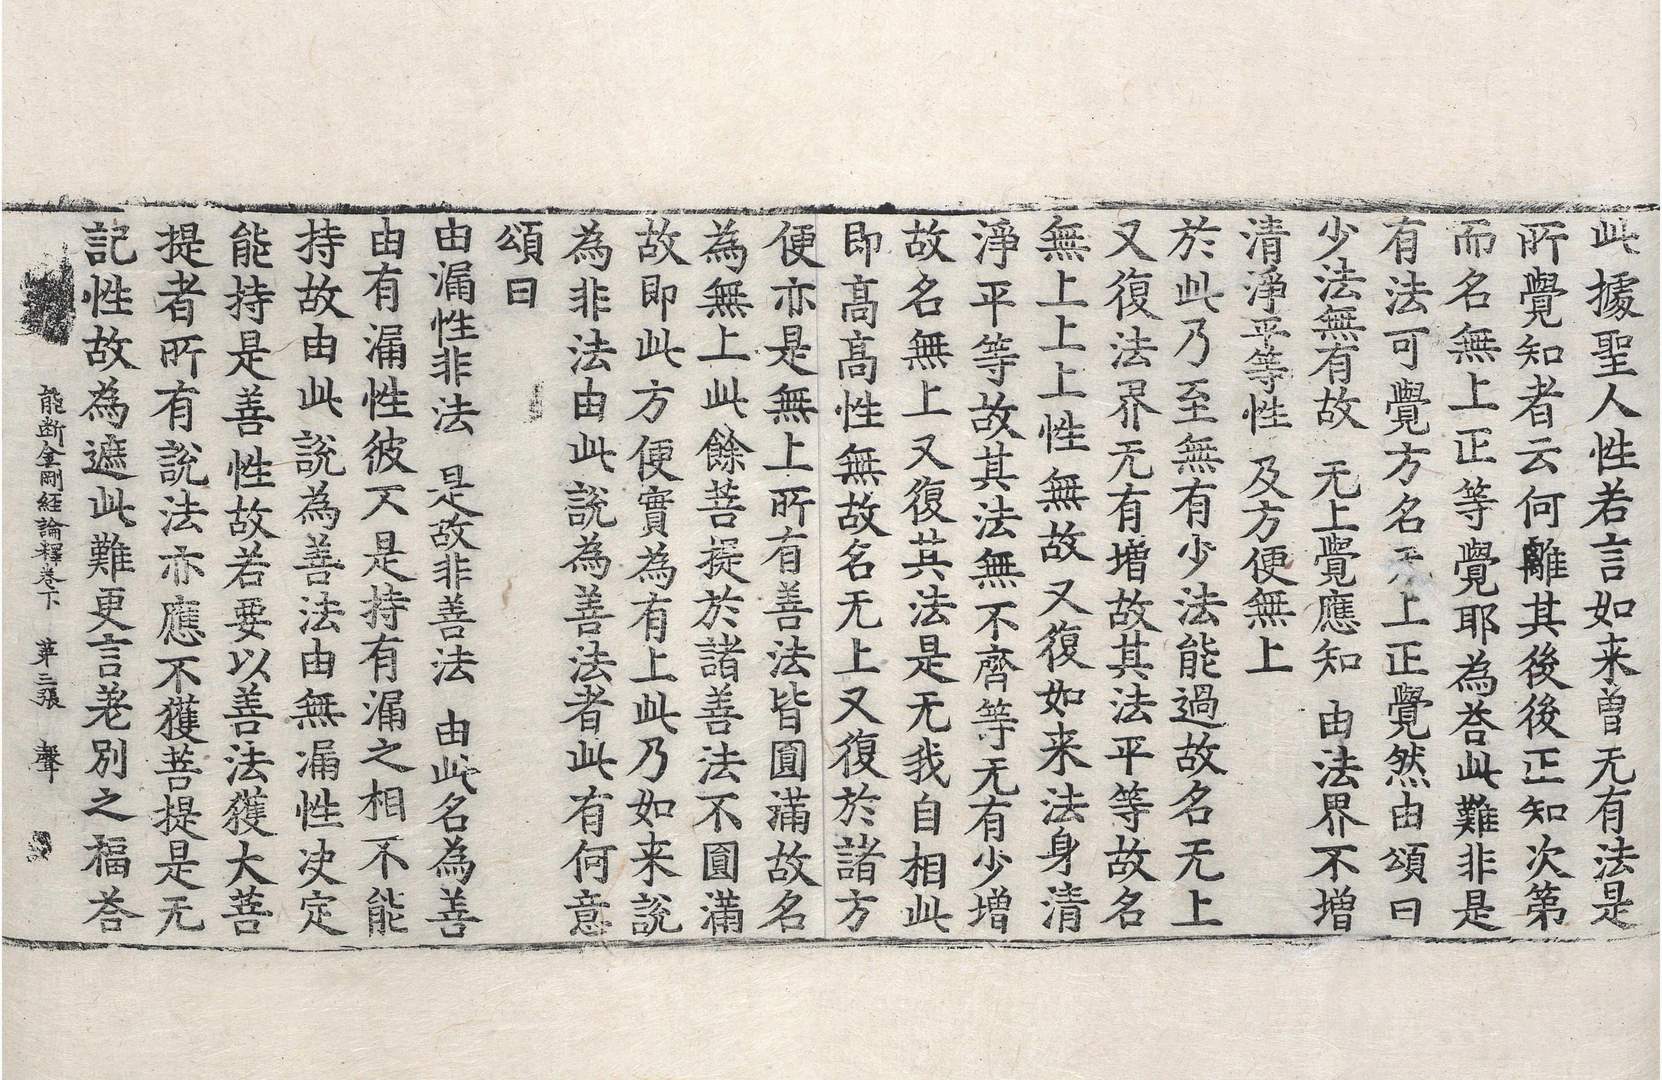 此據聖人性若言如来曽无有法是
所覺知者云何離其後後正知次第
而名無上正等覺耶為荅此難非是
有法可覺方名无上正覺然由頌曰
少法無有故　无上覺應知　由法界不增
清淨平等性　及方便無上
於此乃至無有少法能過故名无上
又復法界无有增故其法平等故名
無上上上性無故又復如来法身清
淨平等故其法無不齊等无有少增
故名無上又復其法是无我自相此
即高高性無故名无上又復於諸方
便亦是無上所有善法皆圓滿故名
為無上此餘菩提於諸善法不圓滿
故即此方便實為有上此乃如来說
為非法由此說為善法者此有何意
頌曰
由漏性非法　是故非善法　由此名為善
由有漏性彼不是持有漏之相不能
持故由此說為善法由無漏性决定
能持是善性故若要以善法獲大菩
提者所有說法亦應不獲菩提是无
記性故為遮此難更言差別之福荅
能断金剛経論釋卷下　第三張　聲